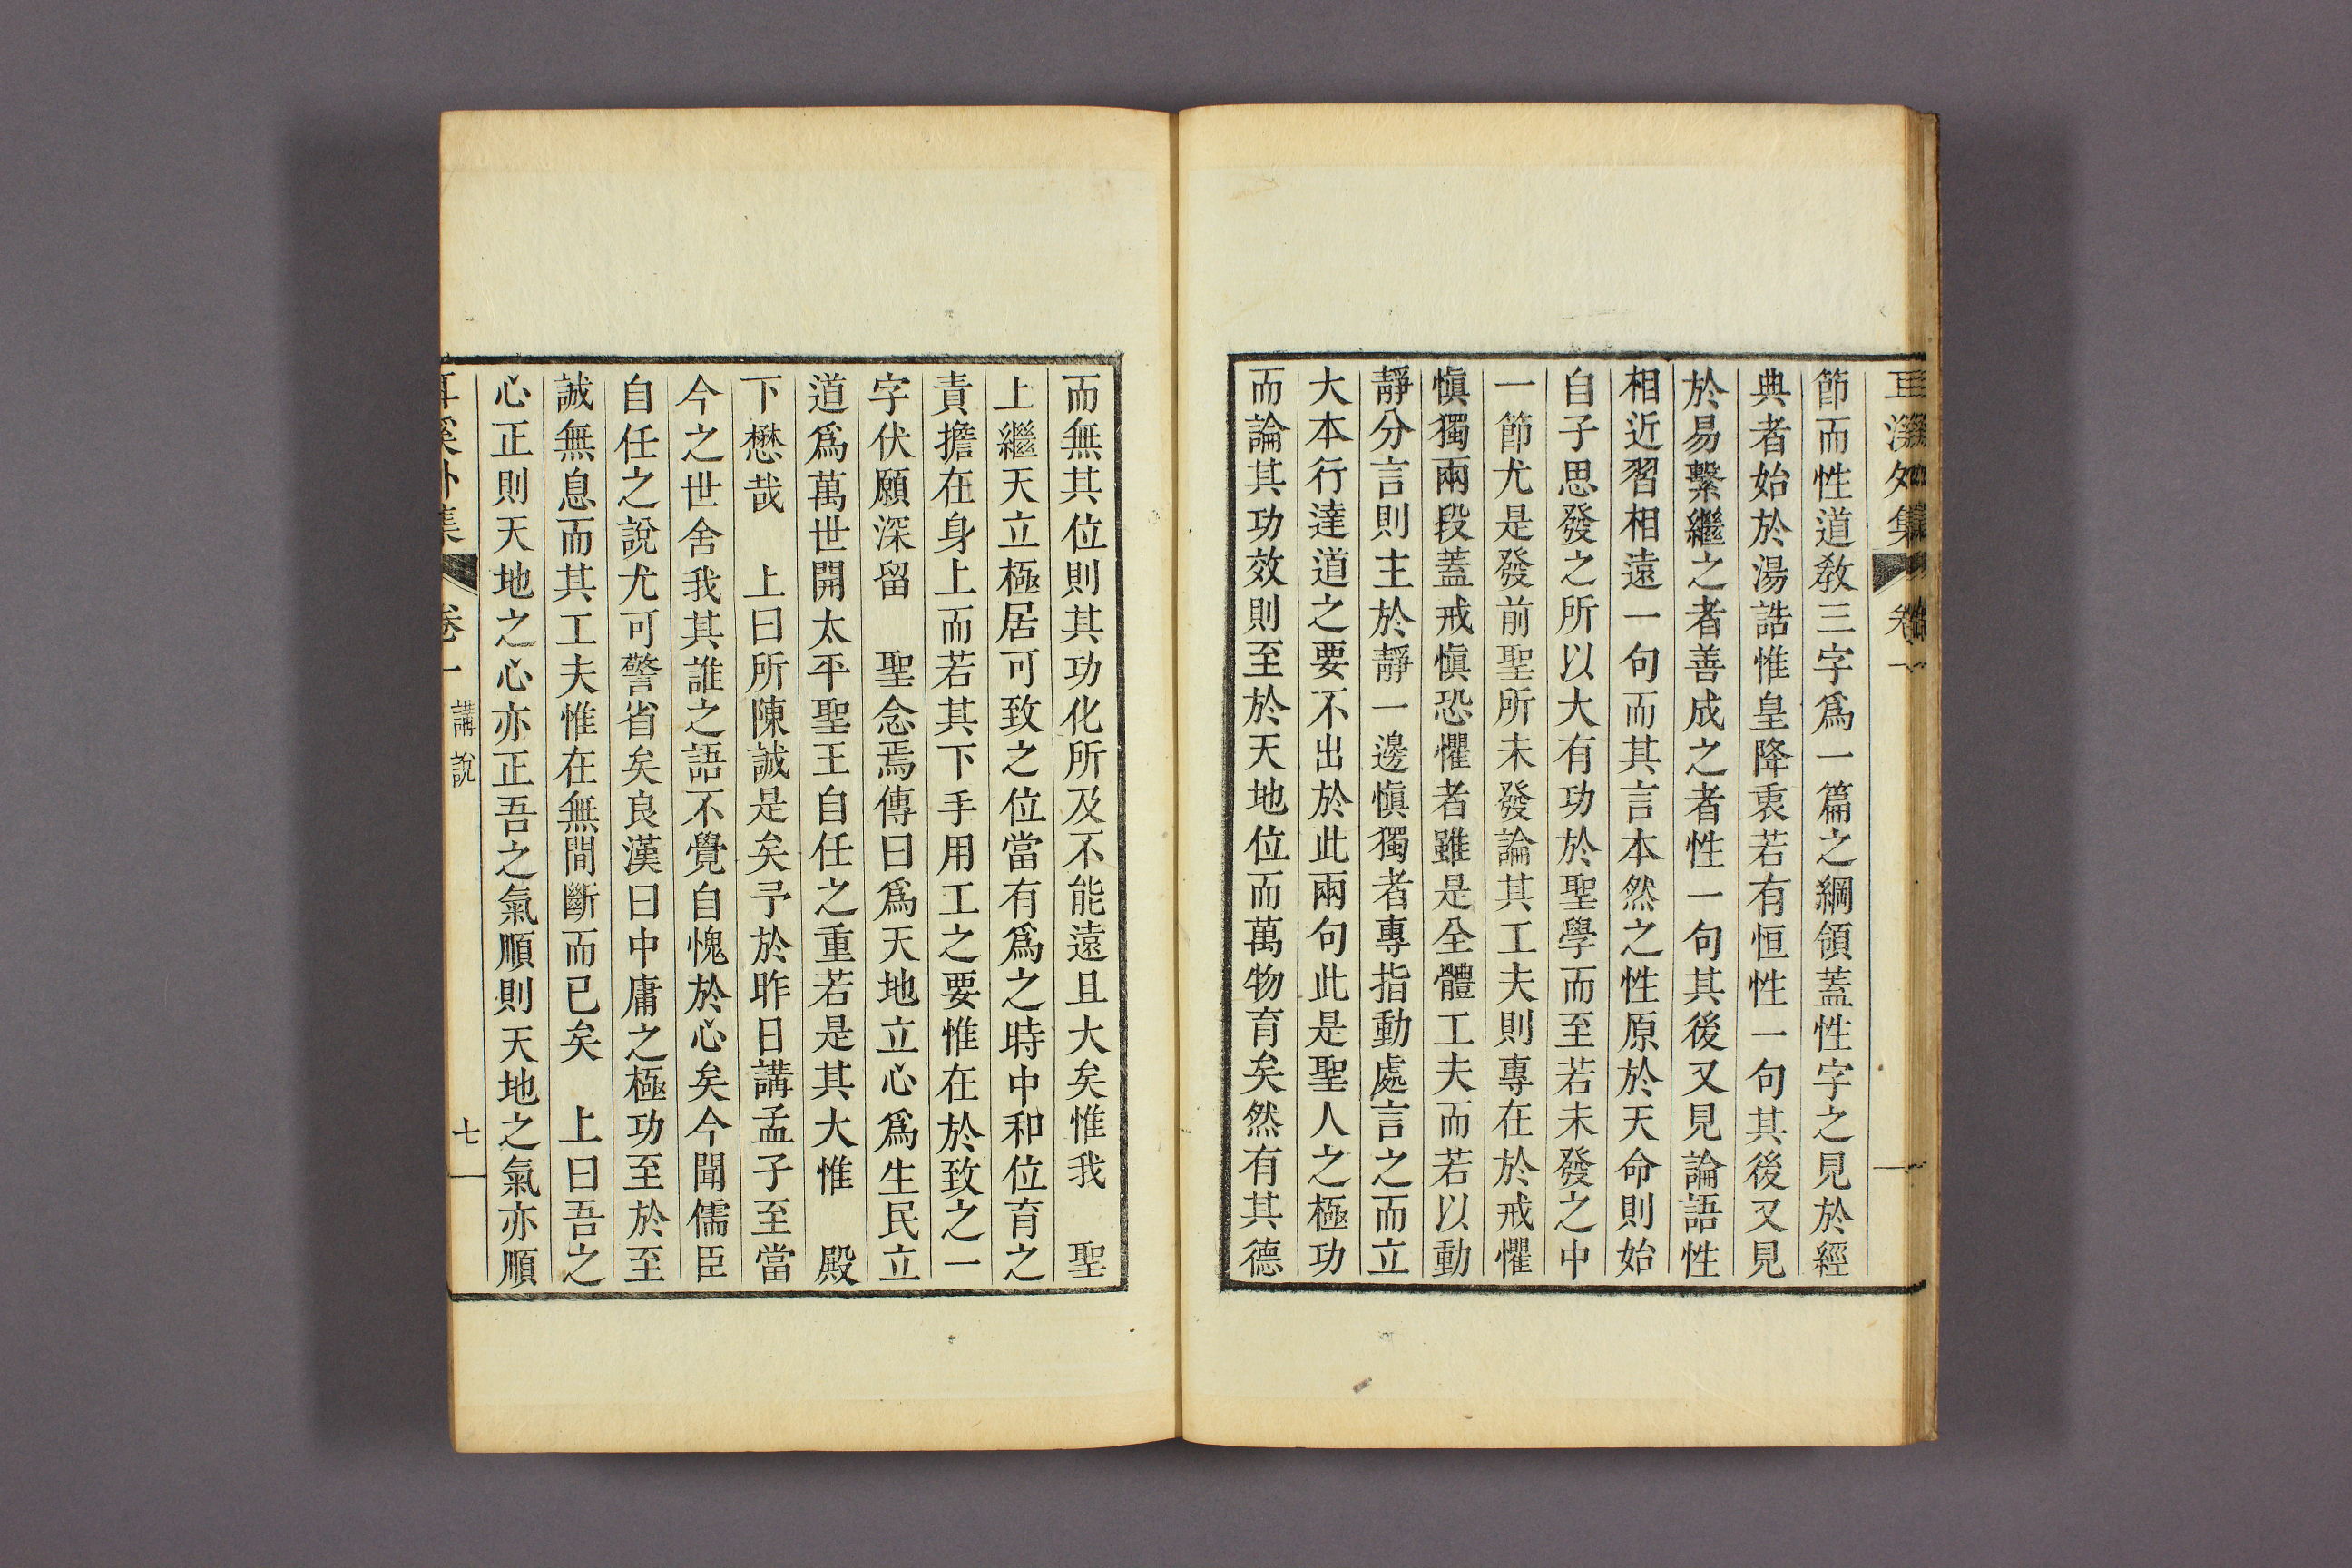 節而性道敎三字爲一篇之綱領蓋性字之見於經
典者始於湯誥惟皇降衷若有恒性一句其後又見
於易繫繼之者善成之者性一句其後又見論語性
相近習相遠一句而其言本然之性原於天命則始
自子思發之所以大有功於聖學而至若未發之中
一節尤是發前聖所未發論其工夫則專在於戒懼
愼獨兩段蓋戒愼恐懼者雖是全體工夫而若以動
靜分言則主於靜一邊愼獨者專指動處言之而立
大本行達道之要不出於此兩句此是聖人之極功
而論其功效則至於天地位而萬物育矣然有其德
而無其位則其功化所及不能遠且大矣惟我　聖
上繼天立極居可致之位當有爲之時中和位育之
責擔在身上而若其下手用工之要惟在於致之一
字伏願深留　聖念焉傳曰爲天地立心爲生民立
道爲萬世開太平聖王自任之重若是其大惟　殿
下懋哉　上曰所陳誠是矣予於昨日講孟子至當
今之世舍我其誰之語不覺自愧於心矣今聞儒臣
自任之說尤可警省矣良漢曰中庸之極功至於至
誠無息而其工夫惟在無間斷而已矣　上曰吾之
心正則天地之心亦正吾之氣順則天地之氣亦順
耳溪外集　卷一　講說　七